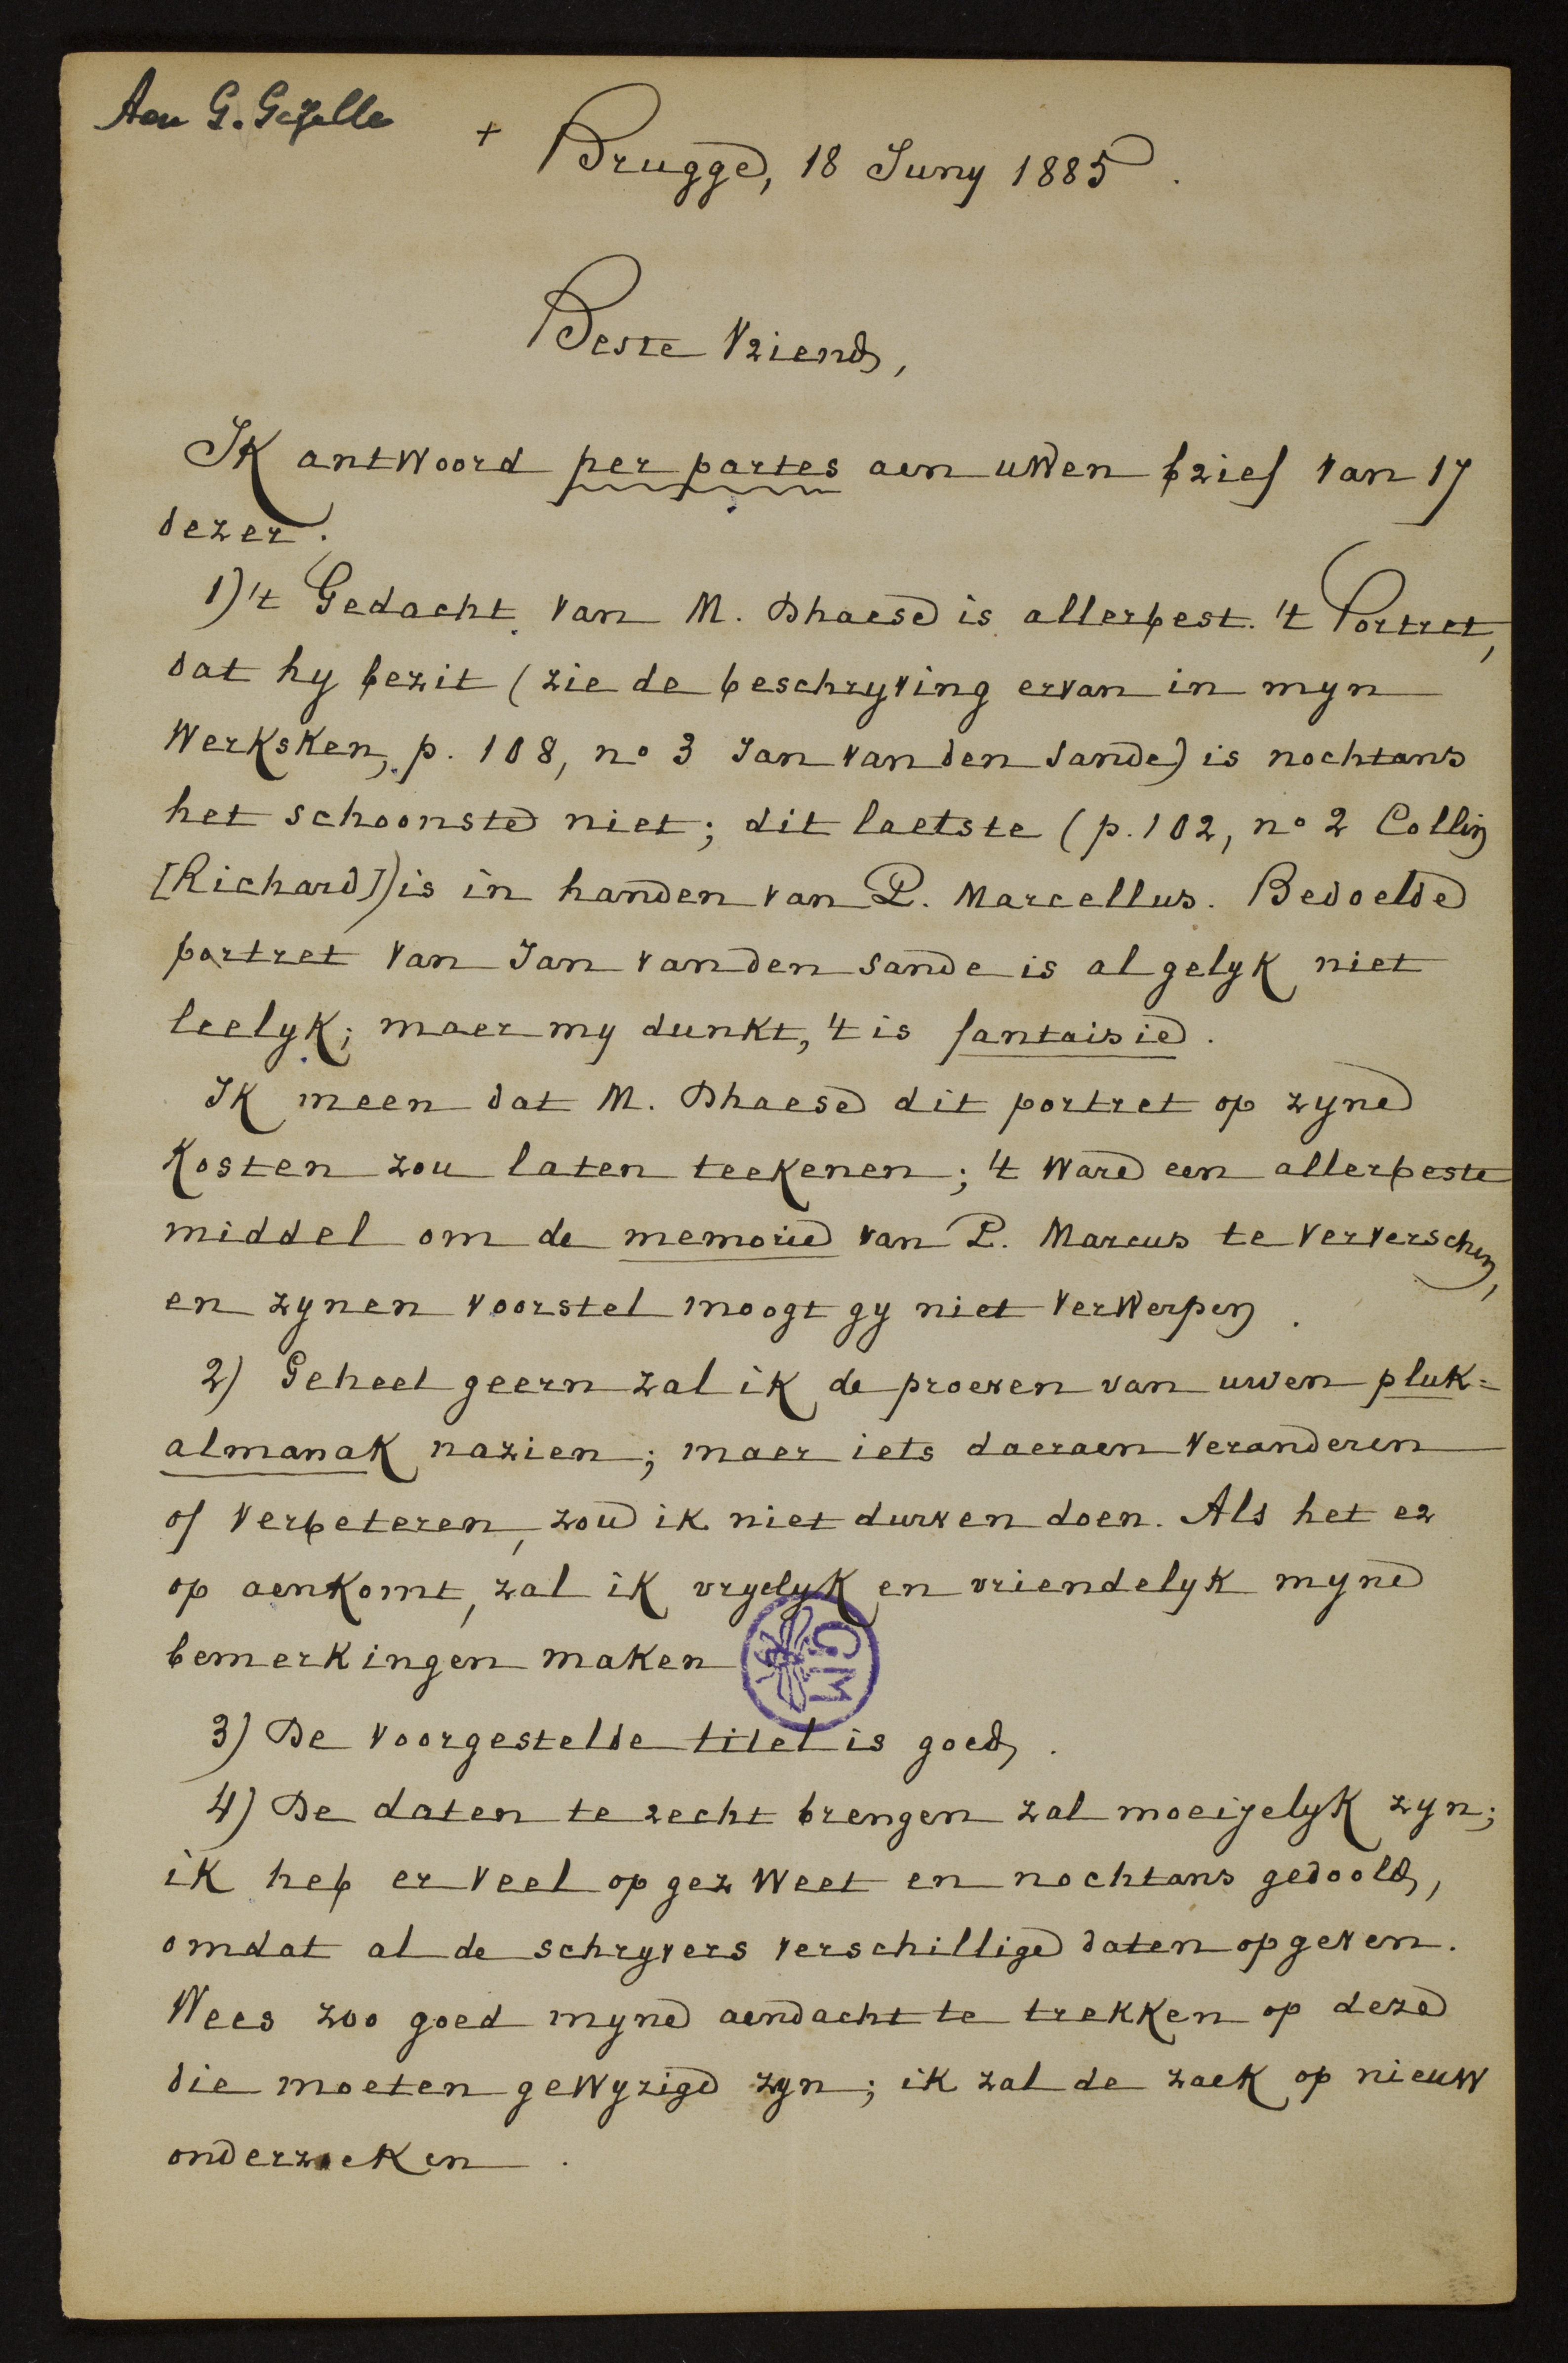 Aen G. Gezelle
+ Brugge, 18 Juny 1885.
Beste Vriend,
Ik antwoord per partes aen uwen brief van 17
dezer.
1) 't Gedacht van M. Dhaese is allerbest. 't Portret,
dat hy bezit (zie de beschryving ervan in myn
Werksken, p. 108, no 3 Jan van den Sande) is nochtans
het schoonste niet; dit laetste (p. 102, no 2 Collin
[Richard]) is in handen van P. Marcellus. Bedoelde
portret van Jan van den Sande is al gelyk niet
leelyk; maer my dunkt, 't is fantaisie.
Ik meen dat M. Dhaese dit portret op zyne
kosten zou laten teekenen; 't ware een allerbeste
middel om de memorie van P. Marcus te ververschen,
en zynen voorstel moogt gy niet verwerpen.
2) Geheel geern zal ik de proeven van uwen pluk=
almanak nazien; maer iets daeraen veranderen
of verbeteren, zou ik niet durven doen. Als het er
op aenkomt, zal ik vryelyk en vriendelyk myne
bemerkingen maken
GM
3) De voorgestelde titel is goed.
4) De daten te recht brengen zal moeijelyk zyn;
ik heb er veel op gezweet en nochtans gedoold,
omdat al de schryvers verschillige daten opgeven.
Wees zoo goed myne aendacht te trekken op deze
die moeten gewyzigd zyn; ik zal de zaek op nieuw
onderzoeken.